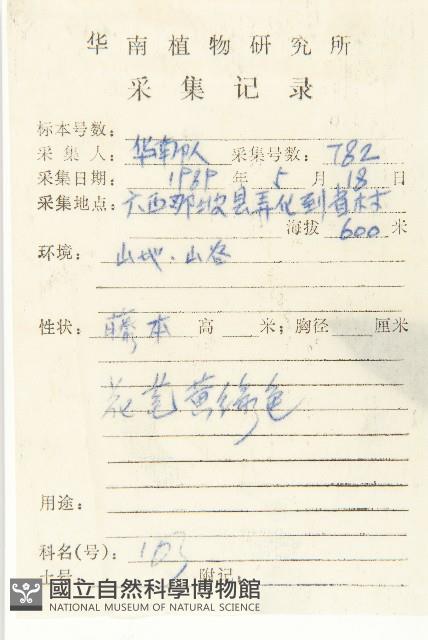 华南植物研究所
采集记录
标本号数：
采集人： 采集号数：782
采集日期：1989年5月18日
采集地点：广西那坡县弄化到百林
海拔 600 米
环境：山地．山谷
性状：藤本 高 米；胸径 厘米
花萼黄绿色
用途：
科名(号)：103
土名： 附记：
國立自然科學博物館
NATIONAL MUSEUM OF NATURAL SCIENCE